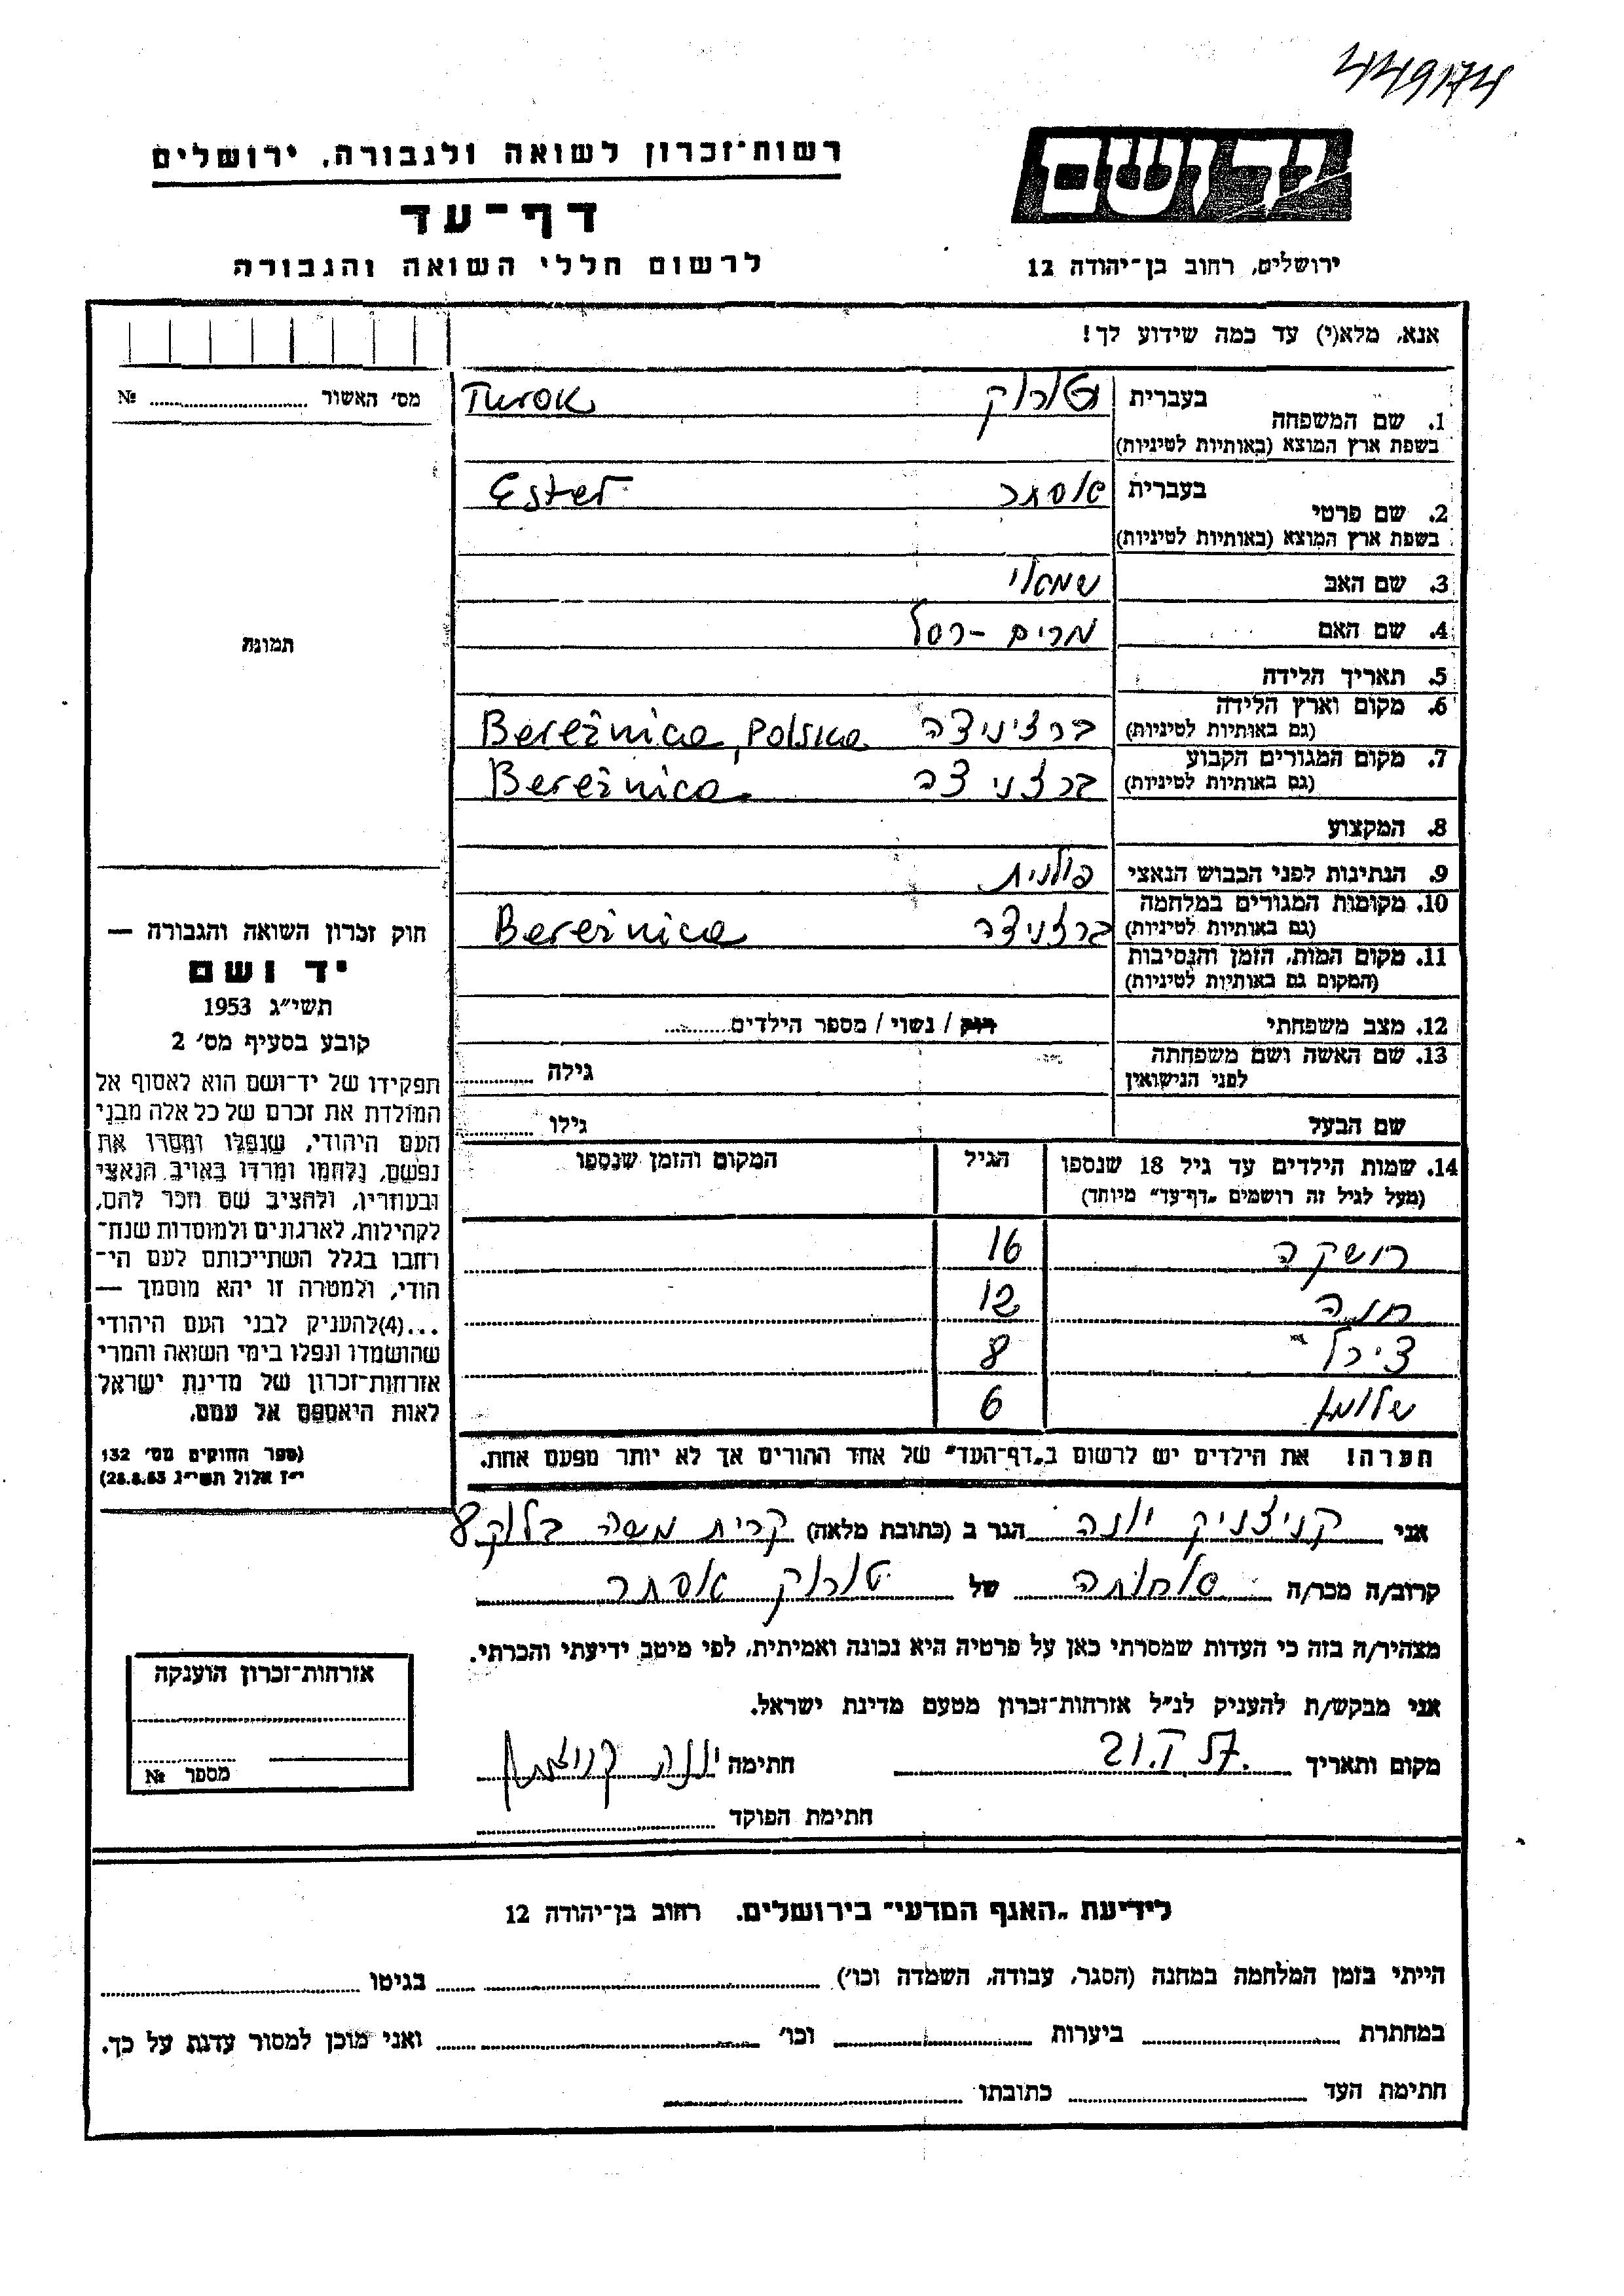 449174
יד ושם
ירושלים, רחוב בן־יהודה 12
רשות־זכרון לשואה ולגבורה, ירושלים
דף־עד
לרשום חללי השואה והגבורה
אנא, מלא(י) עד כמה שידוע לך!
מס׳ האשור ........ №
תמונה
1. שם המשפחה בעברית טורוק Turok
בשפת ארץ המוצא (באותיות לטיניות)
2. שם פרטי בעברית אסתר Ester
בשפת ארץ המוצא (באותיות לטיניות)
3. שם האב שמאי
4. שם האם מרים - רסל
5. תאריך הלידה
6. מקום וארץ הלידה ברז'ניצה Berežnica, Polska
(גם באותיות לטיניות)
7. מקום המגורים הקבוע ברזניצה Berežnica
(גם באותיות לטיניות)
8. המקצוע
9. הנתינות לפני הכבוש הנאצי פולנית
10. מקומות המגורים במלחמה ברזניצה Berežnica
(גם באותיות לטיניות)
11. מקום המות, הזמן והנסיבות
(המקום גם באותיות לטיניות)
12. מצב משפחתי רוק / נשוי / מספר הילדים.........
13. שם האשה ושם משפחתה גילה .........
לפני הנישואין
שם הבעל גילו .........
14. שמות הילדים עד גיל 18 שנספו הגיל המקום והזמן שנספו
(מעל לגיל זה רושמים „דף־עד״ מיוחד)
רושקה 16
חנה 12
צירל 8
שלומו 6
הערה! את הילדים יש לרשום ב„דף־העד״ של אחד ההורים אך לא יותר מפעם אחת.
חוק זכרון השואה והגבורה —
יד ושם
תשי״ג 1953
קובע בסעיף מס׳ 2
תפקידו של יד־ושם הוא לאסוף אל
המולדת את זכרם של כל אלה מבני
העם היהודי, שנפלו ומסרו את
נפשם, נלחמו ומרדו באויב הנאצי
ובעוזריו, ולהציב שם וזכר להם,
לקהילות, לארגונים ולמוסדות שנח־
רחבו בגלל השתייכותם לעם הי־
הודי, ולמטרה זו יהא מוסמך —
...(4)להעניק לבני העם היהודי
שהושמדו ונפלו בימי השואה והמרי
אזרחות־זכרון של מדינת ישראל
לאות היאספם אל עמם.
(ספר החוקים מס׳ 132
י״ז אלול תשי״ג 28.8.53)
אני קניצניק יונה הגר ב (כתובת מלאה) קרית משה בלוק 8
קרוב/ה מכר/ה של טורוק אסתר
מצהיר/ה בזה כי העדות שמסרתי כאן על פרטיה היא נכונה ואמיתית, לפי מיטב ידיעתי והכרתי.
אני מבקש/ת להעניק לנ״ל אזרחות־זכרון מטעם מדינת ישראל.
מקום ותאריך 21.I 57. חתימה יונה
חתימת הפוקד
אזרחות־זכרון הוענקה
מספר №
לידיעת „האגף המדעי״ בירושלים. רחוב בן־יהודה 12
הייתי בזמן המלחמה במחנה (הסגר, עבודה, השמדה וכו׳) ........ בגיטו ........
במחתרת ........ ביערות ........ וכו׳ ........ ואני מוכן למסור עדות על כך.
חתימת העד ........ כתובתו ........